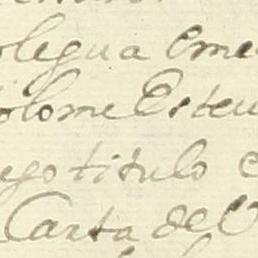 olegua Eme
olome Esteu
ego titulo
Carta de